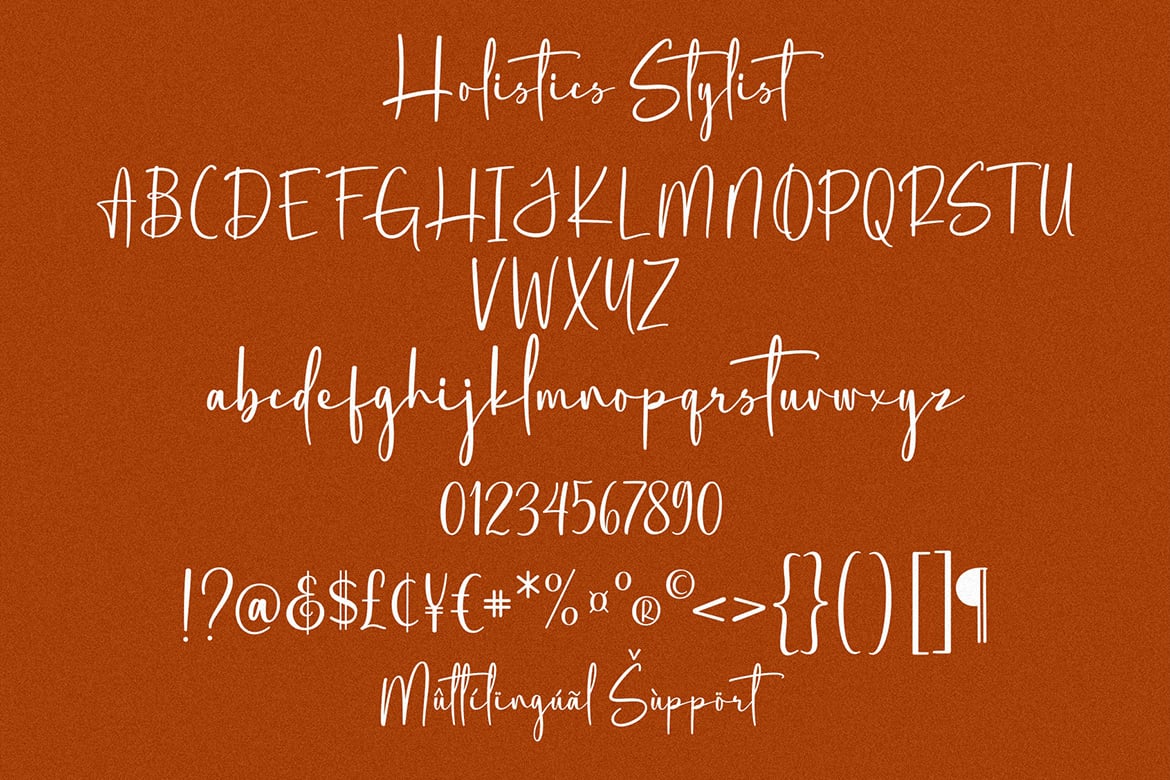 Holistics Stylist
ABCDEFGHIJKLMNOPQRSTU
VWXYZ
abcdefghijklmnopqrstuvwxyz
01234567890
!?@&$£¢¥€#*%¤º®©<>{}()[]¶
Mûltílïngúãl Šùppört